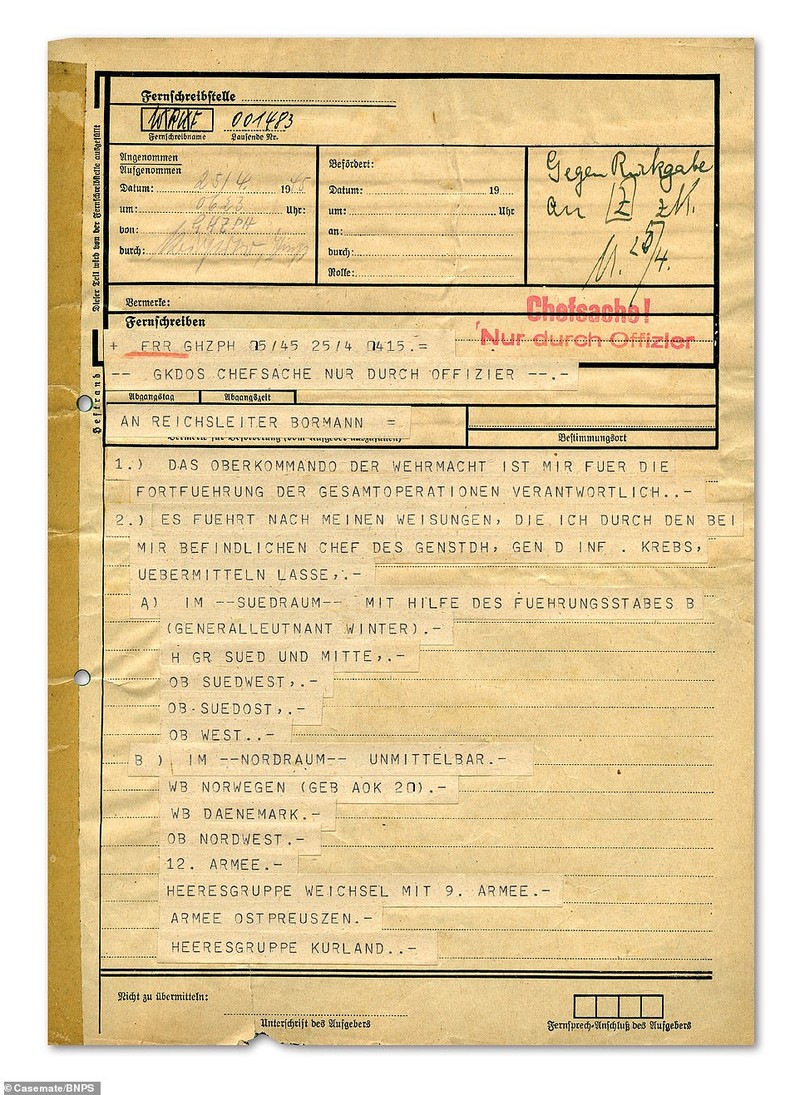 Fernschreibstelle
001483
Fernschreibname Laufende Nr.
Dieser Teil wird von der Fernschreibstelle ausgefüllt
Angenommen
Aufgenommen
Datum: 25/4. 1945
um: 0623 Uhr:
von: GHZPH
durch:
Befördert:
Datum: 19
um: Uhr
an:
durch:
Rolle:
Gegen Rückgabe
an Z
25/4.
Vermerke:
Chefsache!
Nur durch Offizier
Fernschreiben
+ FRR GHZPH 05/45 25/4 0415.=
-- GKDOS CHEFSACHE NUR DURCH OFFIZIER --.-
Heftrand
Abgangstag Abgangszeit
AN REICHSLEITER BORMANN =
Vermerke für Beförderung (vom Aufgeber auszufüllen)
Bestimmungsort
1.) DAS OBERKOMMANDO DER WEHRMACHT IST MIR FUER DIE
FORTFUEHRUNG DER GESAMTOPERATIONEN VERANTWORTLICH..-
2.) ES FUEHRT NACH MEINEN WEISUNGEN, DIE ICH DURCH DEN BEI
MIR BEFINDLICHEN CHEF DES GENSTDH, GEN D INF . KREBS,
UEBERMITTELN LASSE,.-
A) IM --SUEDRAUM-- MIT HILFE DES FUEHRUNGSSTABES B
(GENERALLEUTNANT WINTER).-
H GR SUED UND MITTE,.-
OB SUEDWEST,.-
OB-SUEDOST,.-
OB WEST..-
B ) IM --NORDRAUM-- UNMITTELBAR.-
WB NORWEGEN (GEB AOK 20).-
WB DAENEMARK.-
OB NORDWEST.-
12. ARMEE.-
HEERESGRUPPE WEICHSEL MIT 9. ARMEE.-
ARMEE OSTPREUSZEN.-
HEERESGRUPPE KURLAND..-
Nicht zu übermitteln:
Unterschrift des Aufgebers
Fernsprech-Anschluß des Aufgebers
© Casemate/BNPS